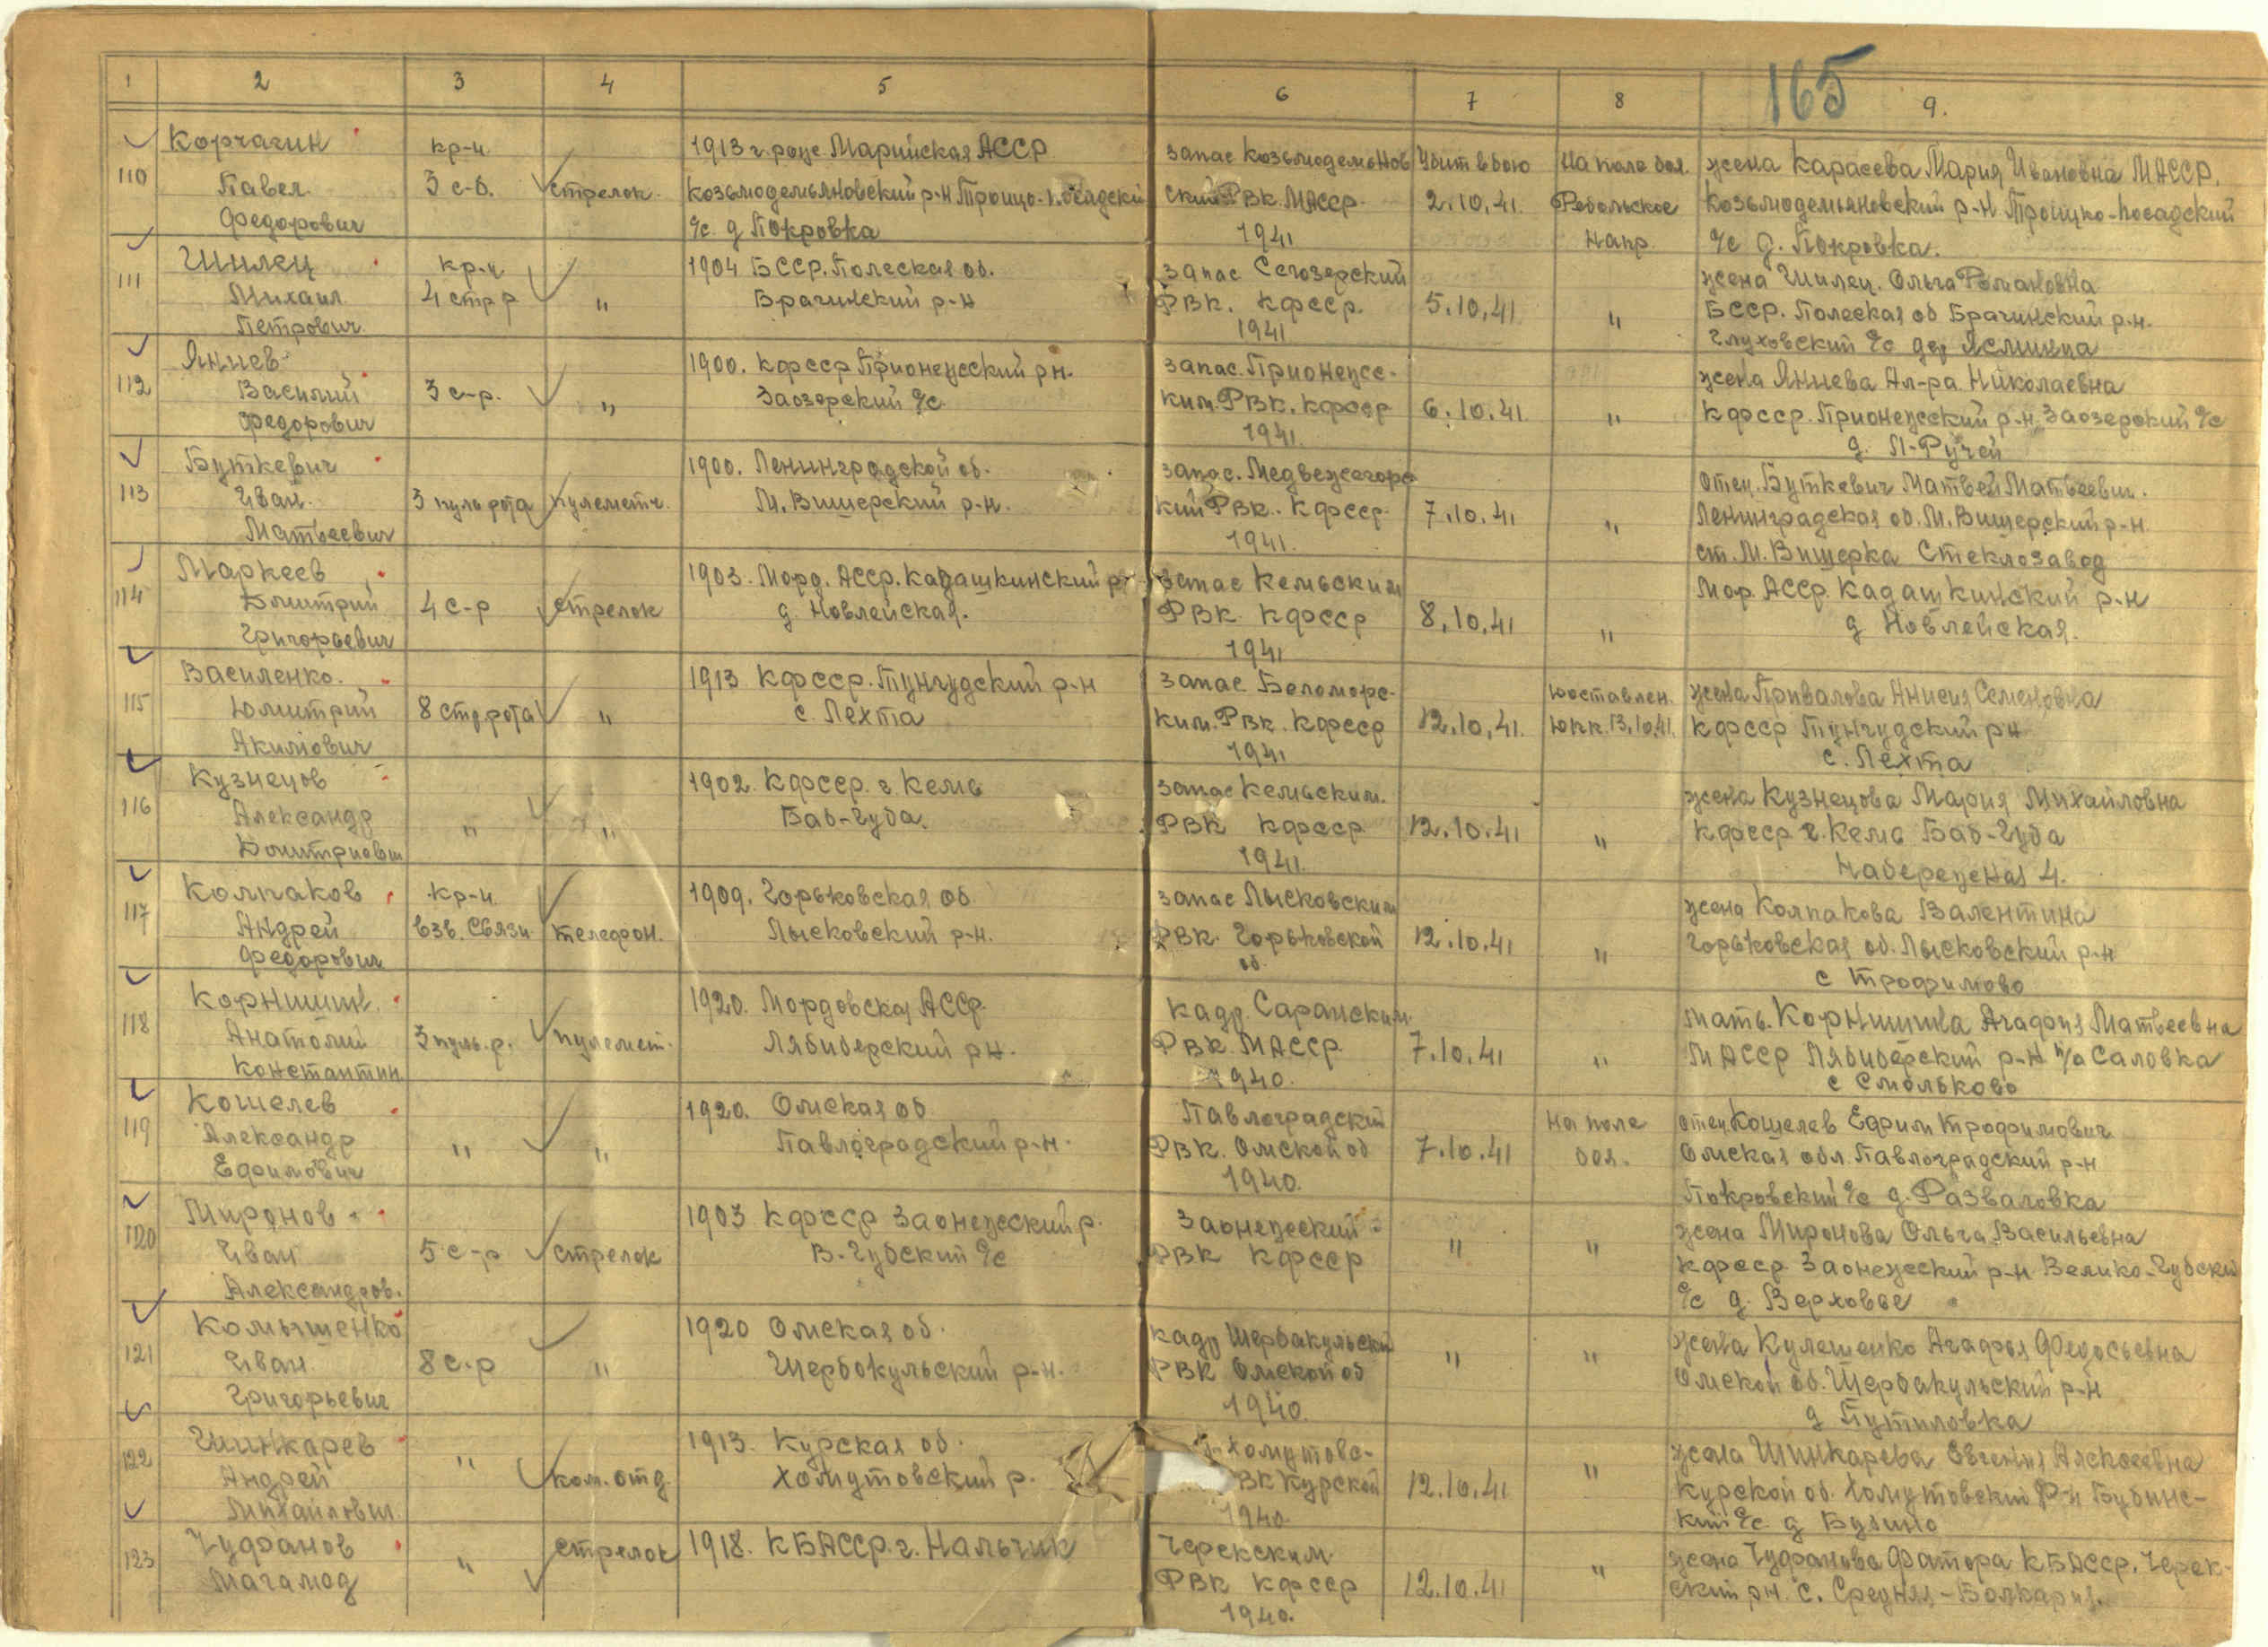 165
1 2 3 4 5 6 7 8 9.
110 Корчагин Павел Федорович кр-ц 3 с-б. стрелок 1913 г. роже. Марийская АССР Козьмодемьяновский р-н Троицо-Посадский с/с. д Покровка запас Козьмодемьянов ский РВК МАССР 1941 Убит в бою 2.10.41. На поле боя. Ребольское напр. жена Карасева Мария Ивановна МАССР. Козьмодемьяновский р-н Троицко-Посадский с/с д. Покровка.
111 Шилец Михаил Петрович кр-ц 4 стр р " 1904 БССР. Полеская об. Брагинский р-н запас Сегозерский РВК. КФССР. 1941 5.10.41 " жена Шилец. Ольга Романовна БССР. Полеская об Брагинский р-н. Глуховский с/с дер Ясминца
112 Яншев Василий Федорович 3 с-р. " 1900. КФССР Прионежский рн. Заозерский с/с запас. Прионежс-ким. РВК. КФССР 1941. 6.10.41. " жена Яншева Ал-ра Николаевна КФССР. Прионежский р-н Заозерский с/с д. П-Ручей
113 Буткевич Иван. Матвеевич 3 пуль рота пулеметч. 1900. Ленинградской об. М. Вишерский р-н. запас. Медвежегорс кий РВК. КФССР. 1941. 7.10.41 " Отец. Буткевич Матвей Матвеевич. Ленинградская об. М. Вишерский р-н ст. М. Вишерка Стеклозавод
114 Маркеев Дмитрий Григорьевич 4 с-р стрелок 1903. Морд. АССР. Кадашкинский р- д. Новлейская. запас Кемьским РВК КФССР 1941 8.10.41 " Мор. АССР. Кадашкинский р-н д Новлейская.
115 Василенко. Дмитрий Акимович 8 стр рота " 1913 КФССР. Тунгудский р-н с. Лехта запас Беломорс-ким. РВК. КФССР 1941 12.10.41. юоставлен. юпк. 13.10.41. жена Привалова Анисия Семеновна КФССР Тунгудский рн с. Лехта
116 Кузнецов Александр Дмитриевич " " 1902. КФССР. г. Кемь Баб-Губа. запас Кемьским. РВК КФССР 1941. 12.10.41 " жена Кузнецова Мария Михайловна КФССР г. Кемь Баб-Губа Набережная 4.
117 Колпаков Андрей Федорович кр-ц взв. связи телефон. 1909. Горьковская об Лысковский р-н. запас Лысковским РВК. Горьковской об. 12.10.41 " жена Колпакова Валентина Горьковская об. Лысковский р-н с Трофимово
118 Корнишин. Анатолий Константин 3 пуль.р. пулемет. 1920. Мордовская АССР. Лябиберский рн. кадр. Саранским РВК МАССР. 1940. 7.10.41 " мать. Корнишина Агафия Матвеевна МАССР Лябиберский р-н п/о Саловка с Смольково
119 Кошелев Александр Ефимович " " 1920. Омская об Павлоградский р-н. Павлоградский РВК. Омской об 1940. 7.10.41 На поле боя. отец Кошелев Ефим Трофимович Омская обл. Павлоградский р-н Покровский с/с д. Разваловка
120 Миронов Иван Александров. 5 с-р стрелок 1903 КФССР Заонежский р. В-Губский с/с Заонежский РВК КФССР " " жена Миронова Ольга Васильевна КФССР Заонежский р-н Велико-Губский с/с д. Верховье
121 Комышенко Иван Григорьевич 8 с-р " 1920 Омская об. Щербокульский р-н. кадр Щербакульский РВК Омской об 1940 " " жена Кулешенко Агафья Федосьевна Омской об. Щербакульский р-н д Путиловка
122 Шинкарев Андрей Михайлович " ком. отд. 1913. Курская об. Хомутовский р. Хомутовс- ВК Курской 1940. 12.10.41 " жена Шинкарева Евгения Алексеевна Курской об. Хомутовский р-н кий с/с д
123 Чуфанов Магамод " стрелок 1918. КБАССР. г. Нальчик Черекским РВК КФССР 1940. 12.10.41 " жена Чуфанова Фатора КБАССР. Черек-ский рн. с. Средняя-Болкария.